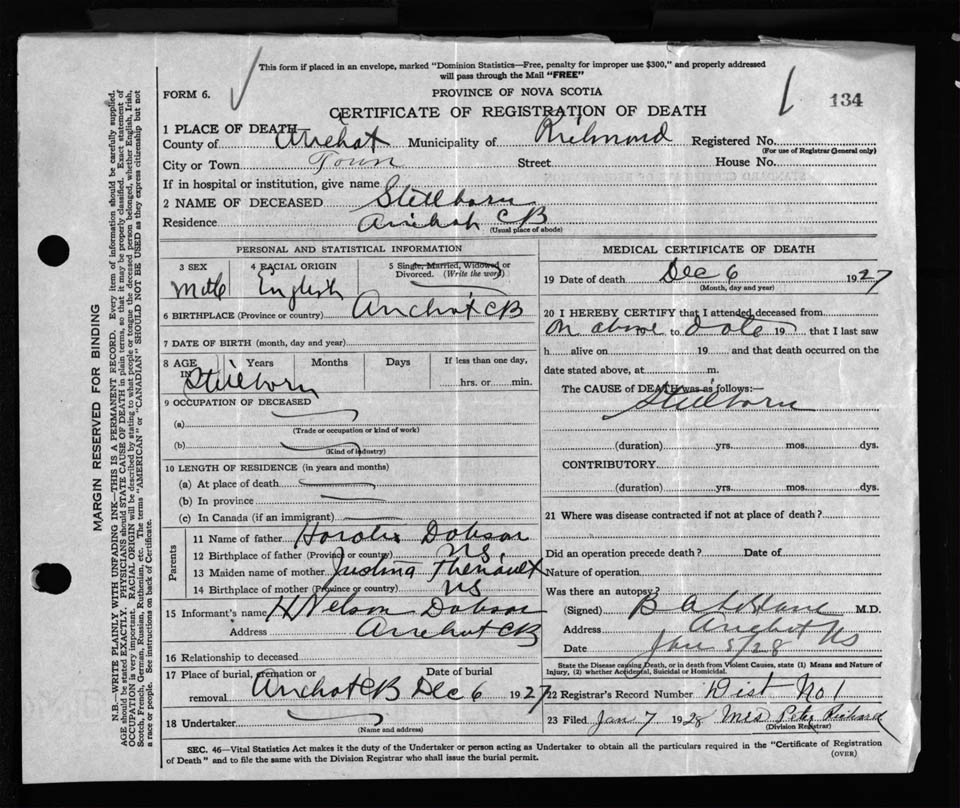 This form if placed in an envelope, marked "Dominion Statistics—Free, penalty for improper use $300," and properly addressed
will pass through the Mail "FREE"
FORM 6.
PROVINCE OF NOVA SCOTIA
CERTIFICATE OF REGISTRATION OF DEATH
134
1 PLACE OF DEATH
County of Arichat Municipality of Richmond Registered No.
(For use of Registrar General only)
City or Town Town Street House No.
If in hospital or institution, give name
2 NAME OF DECEASED Stillborn
Residence Arichat CB
(Usual place of abode)
PERSONAL AND STATISTICAL INFORMATION
3 SEX 4 RACIAL ORIGIN 5 Single, Married, Widowed or
Divorced. (Write the word)
English
6 BIRTHPLACE (Province or country) Arichat CB
7 DATE OF BIRTH (month, day and year)
8 AGE Years Months Days If less than one day,
IN Stillborn hrs. or min.
9 OCCUPATION OF DECEASED
(a)
(Trade or occupation or kind of work)
(b)
(Kind of industry)
10 LENGTH OF RESIDENCE (in years and months)
(a) At place of death
(b) In province
(c) In Canada (if an immigrant)
Parents
11 Name of father Dobson
12 Birthplace of father (Province or country) NS.
13 Maiden name of mother Justina Theriault
14 Birthplace of mother (Province or country) NS
15 Informant's name H Nelson Dobson
Address Arichat CB
16 Relationship to deceased
17 Place of burial, cremation or Date of burial
removal Arichat CB Dec 6 1927
18 Undertaker
(Name and address)
MEDICAL CERTIFICATE OF DEATH
19 Date of death Dec 6 1927
(Month, day and year)
20 I HEREBY CERTIFY that I attended deceased from
on above to date 19 that I last saw
h alive on 19 and that death occurred on the
date stated above, at m.
The CAUSE OF DEATH was as follows:—
Stillborn
(duration) yrs. mos. dys.
CONTRIBUTORY
(duration) yrs. mos. dys.
21 Where was disease contracted if not at place of death?
Did an operation precede death? Date of
Nature of operation
Was there an autopsy?
(Signed) B A LeBlanc M.D.
Address Arichat NS
Date Jan 5/28
State the Disease causing Death, or in death from Violent Causes, state (1) Means and Nature of
Injury, (2) whether Accidental, Suicidal or Homicidal.
22 Registrar's Record Number Dist No 1
23 Filed Jan 7 1928 Mrs Peter Richard
(Division Registrar)
SEC. 46—Vital Statistics Act makes it the duty of the Undertaker or person acting as Undertaker to obtain all the particulars required in the "Certificate of Registration
of Death" and to file the same with the Division Registrar who shall issue the burial permit.
(OVER)
MARGIN RESERVED FOR BINDING
N.B.—WRITE PLAINLY WITH UNFADING INK—THIS IS A PERMANENT RECORD. Every item of information should be carefully supplied.
AGE should be stated EXACTLY. PHYSICIANS should STATE CAUSE OF DEATH in plain terms, so that it may be properly classified. Exact statement of
OCCUPATION is very important. RACIAL ORIGIN will be described by stating to what people or tongue the deceased person belonged, whether English, Irish,
Scotch, French, German, Russian, Ruthenian, etc. The terms "AMERICAN" or "CANADIAN" SHOULD NOT BE USED as they express citizenship but not
a race or people. See instructions on back of Certificate.